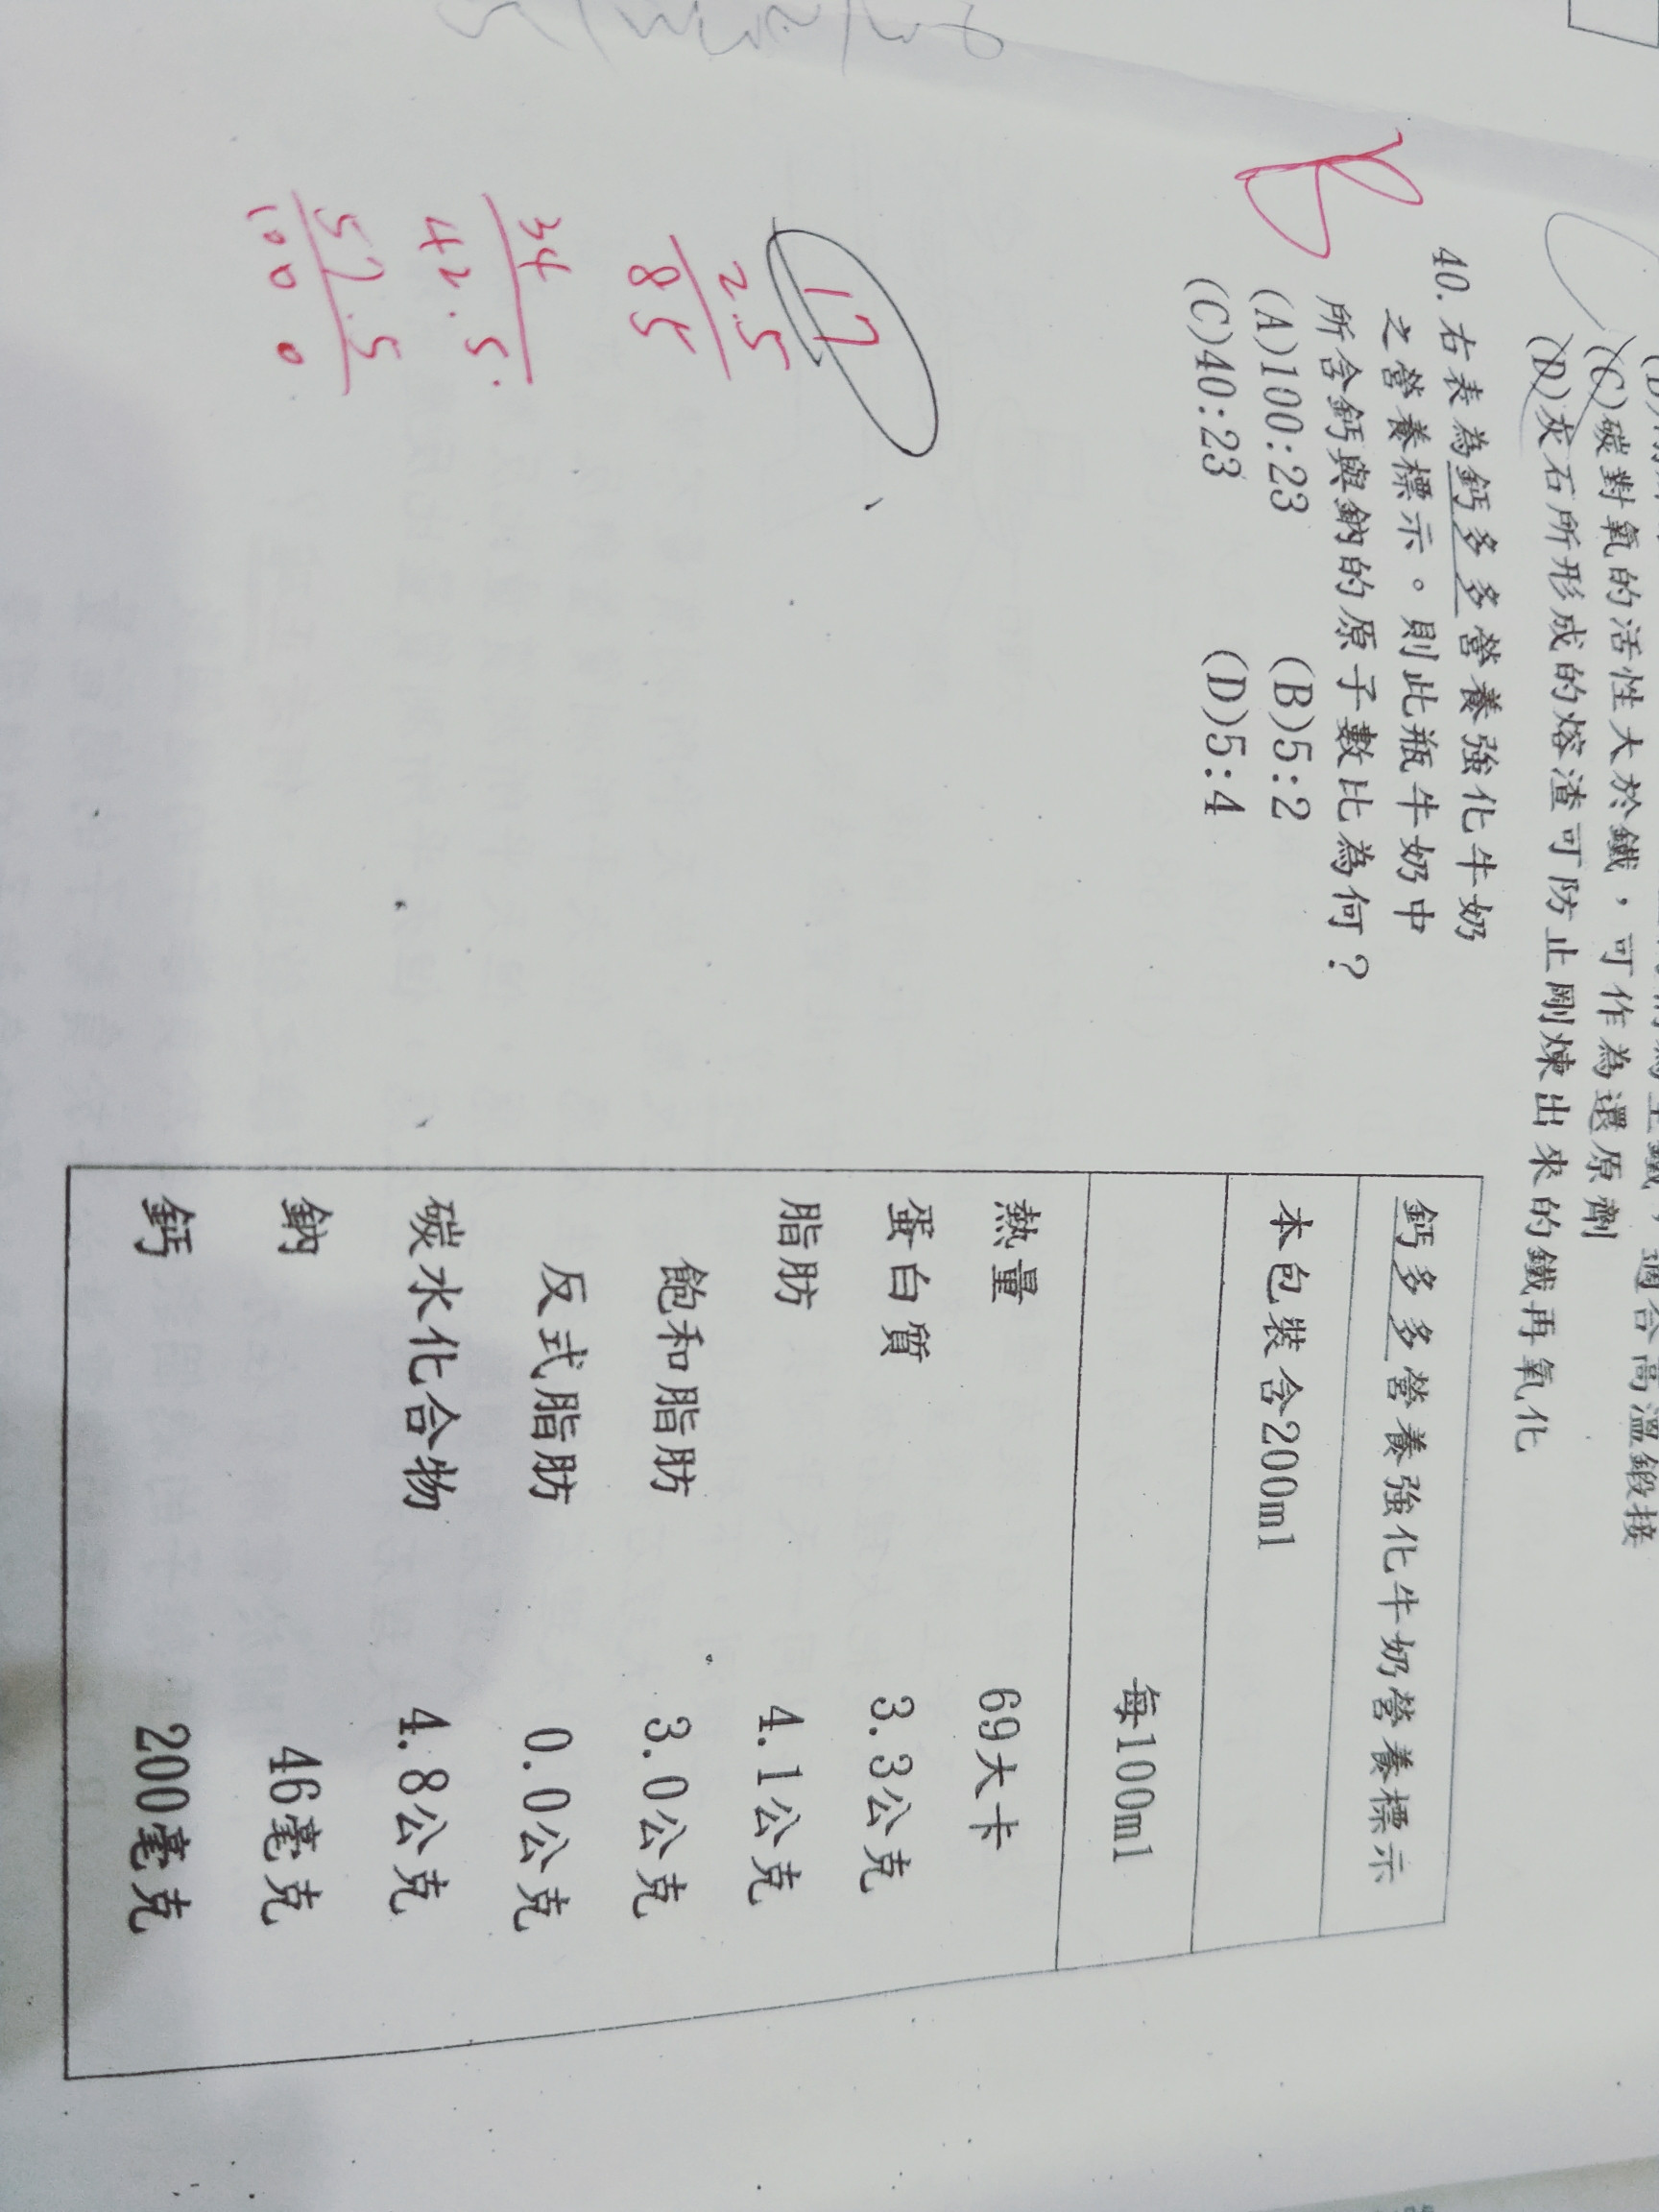 (C)碳對氧的活性大於鐵，可作為還原劑
(D)灰石所形成的熔渣可防止剛煉出來的鐵再氧化
40.右表為鈣多多營養強化牛奶
之營養標示。則此瓶牛奶中
所含鈣與鈉的原子數比為何？
(A)100:23 (B)5:2
(C)40:23 (D)5:4
鈣多多營養強化牛奶營養標示
本包裝含200ml
每100ml
熱量 69大卡
蛋白質 3.3公克
脂肪 4.1公克
飽和脂肪 3.0公克
反式脂肪 0.0公克
碳水化合物 4.8公克
鈉 46毫克
鈣 200毫克
17
2.5
85
34
42.5
57.5
100